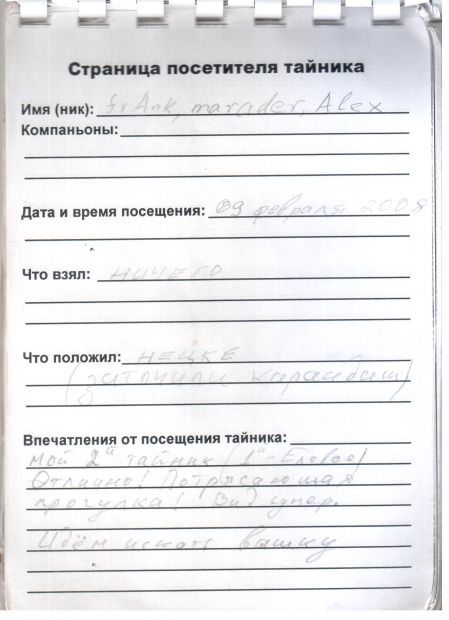 Страница посетителя тайника
Имя (ник): frAnk, marader, Alex
Компаньоны:
Дата и время посещения: 09 февраля 2008
Что взял: НИЧЕГО
Что положил: НЕЦКЕ
(ЗАТОЧИЛИ карандаш)
Впечатления от посещения тайника:
Мой 2й тайник (1й - Еловое)
Отлично! Потрясающая
прогулка! Вид супер.
Идём искать вышку